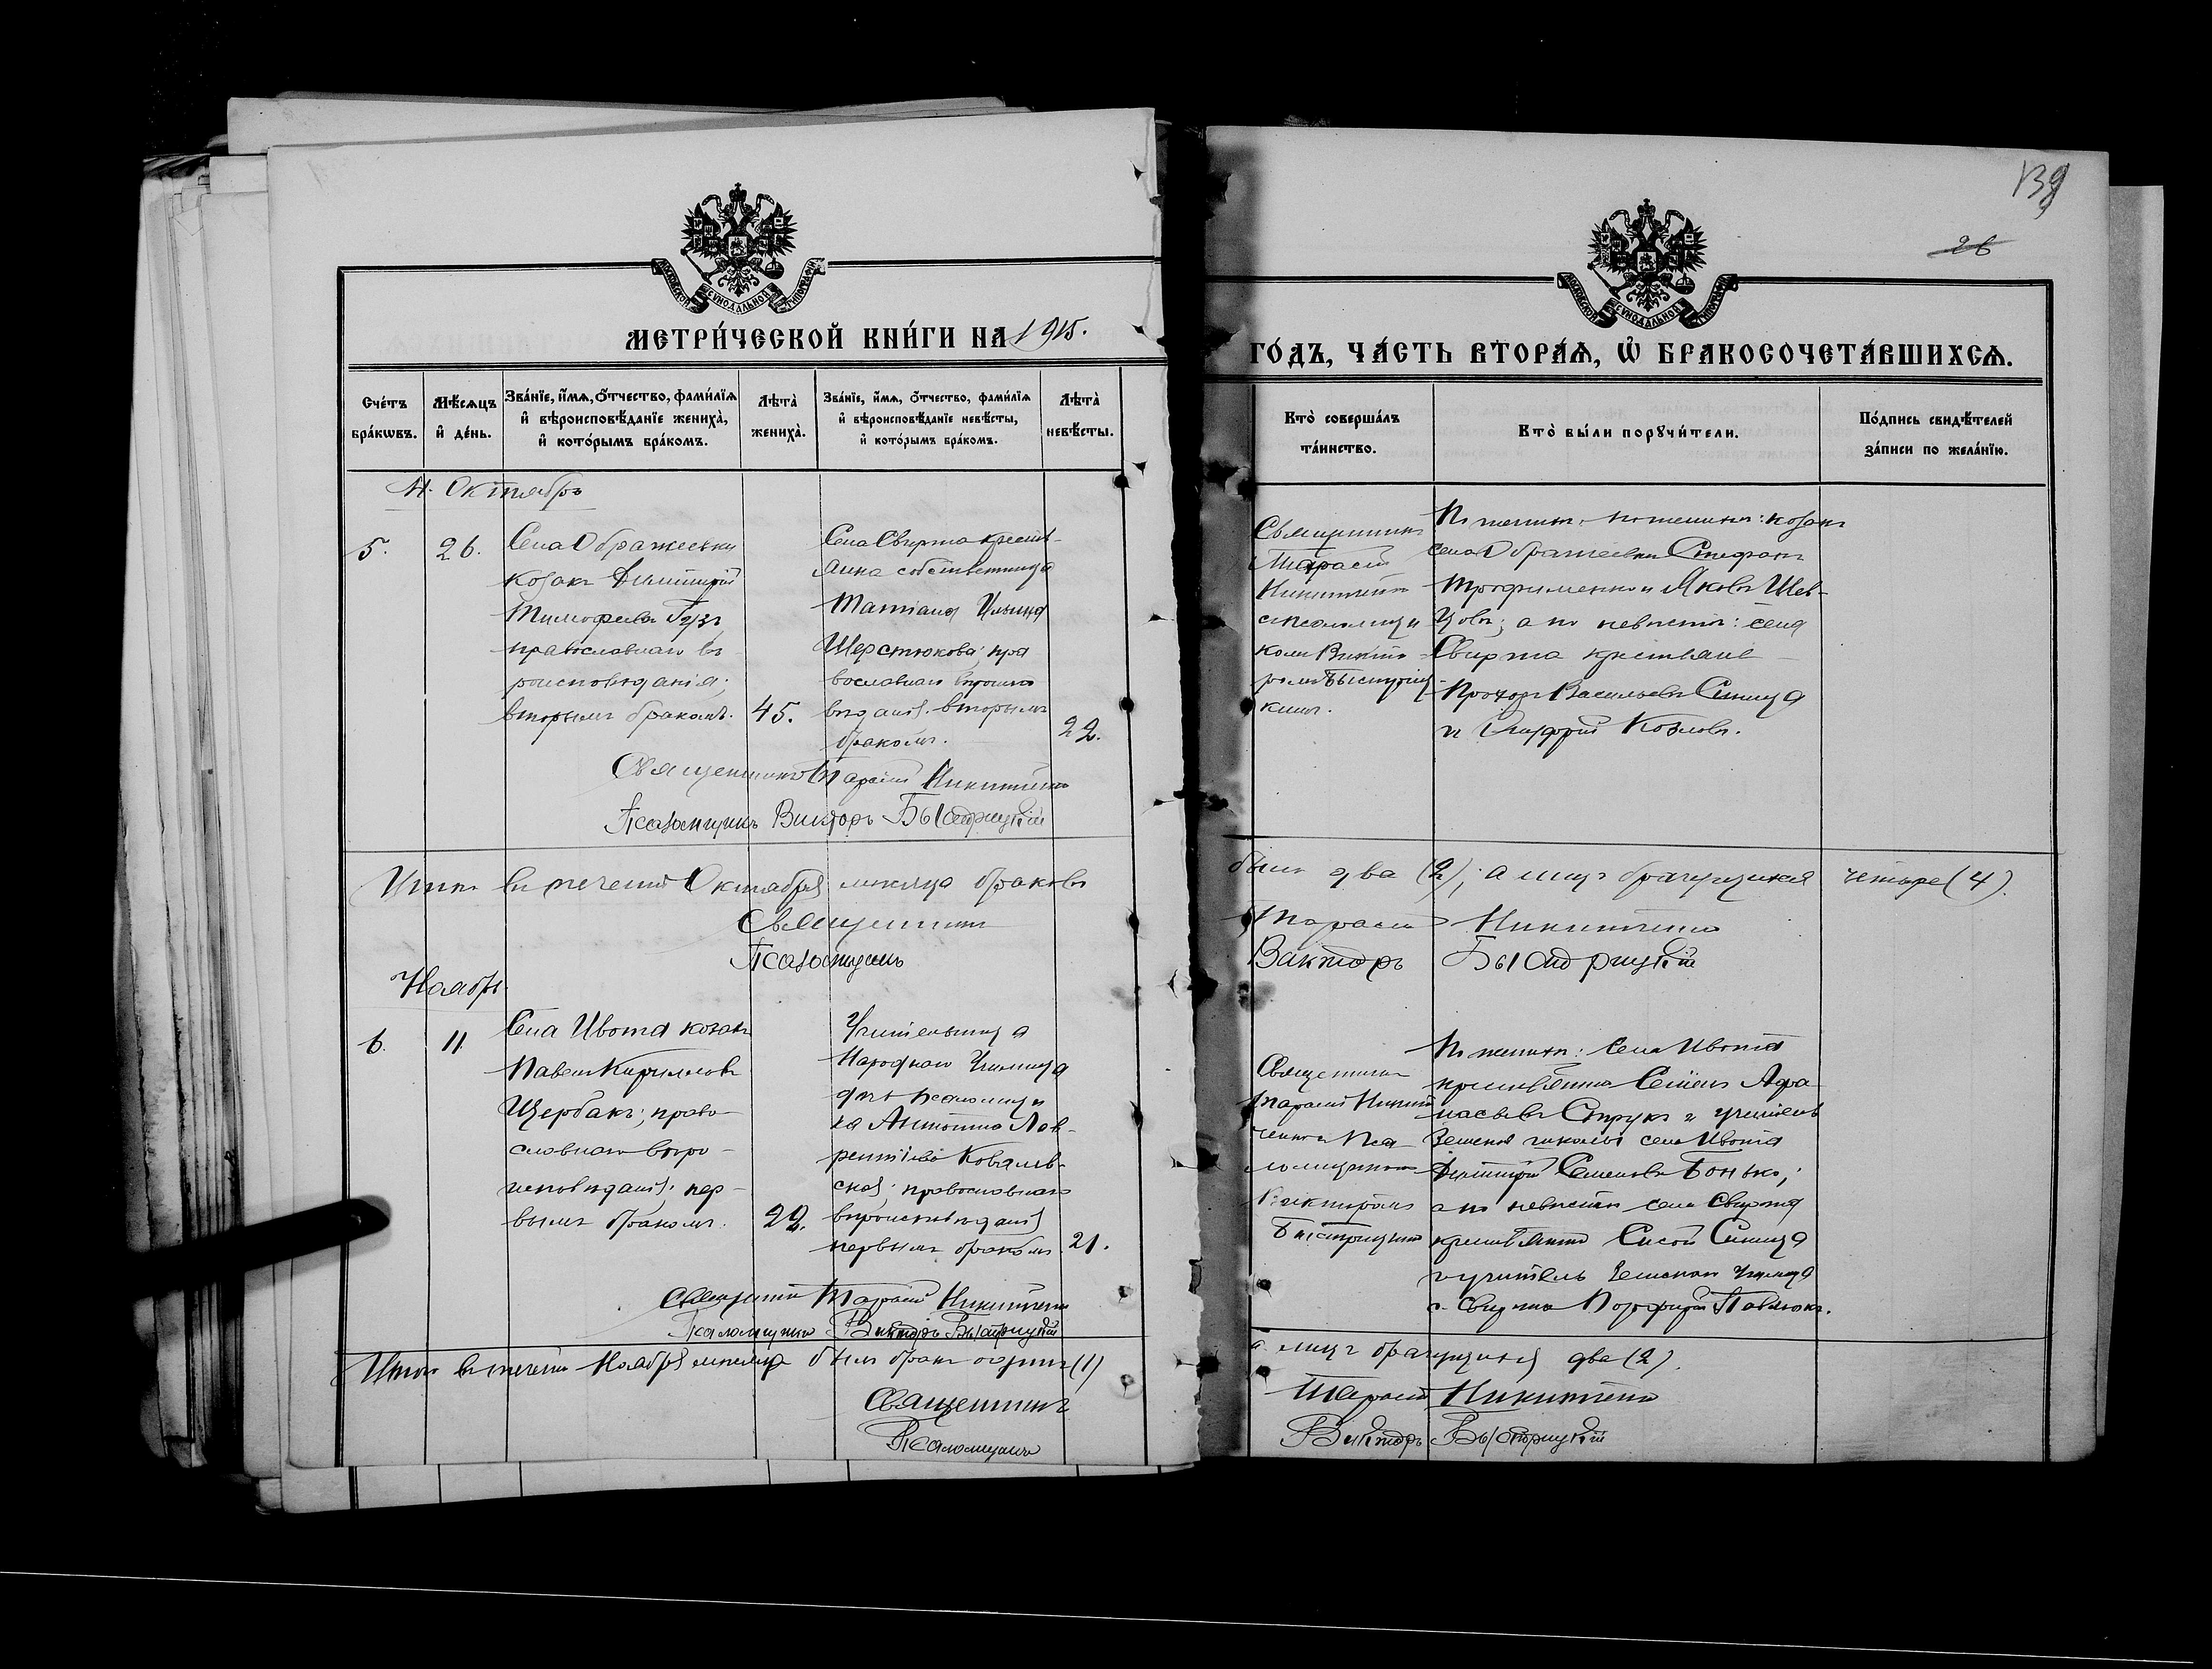 139
26
МОСКОВСКОЙ СѴНОДАЛЬНОЙ ТИПОГРАФІИ
МОСКОВСКОЙ СѴНОДАЛЬНОЙ ТИПОГРАФІИ
МЕТРИ́ЧЕСКОЙ КНИ́ГИ НА 1915.
ГО́ДЪ, ЧА́СТЬ ВТОРА́Ѧ, Ѽ БРАКОСОЧЕТА́ВШИХСѦ.
Сче́тъ бра́кѡвъ.
Мѣ́сѧцъ и҆ де́нь.
Зва́нїе, и҆́мѧ, ѻ҆́тчество, фами́лїѧ
и҆ вѣроисповѣ́данїе жениха̀,
и҆ кото́рымъ бра́комъ.
Лѣта̀ жениха̀.
Зва́нїе, и҆́мѧ, ѻ҆́тчество, фами́лїѧ
и҆ вѣроисповѣ́данїе невѣ́сты,
и҆ кото́рымъ бра́комъ.
Лѣта̀ невѣ́сты.
Кто̀ соверша́лъ та́инство.
Кто̀ бы́ли порꙋчи́тели.
По́дпись свидѣ́телей
за́писи по жела́нїю.
Октябрь
5.
26.
Села Ображеевки
козакъ Димитрій
Тимофеевъ Гузь,
православнаго вѣ-
роисповѣданія;
вторымъ бракомъ.
45.
Села Свирта крестья-
янка собственница
Татіана Ильина
Шерстюкова; пра
вославнаго вѣроиспо
вѣданія. вторымъ
бракомъ.
22.
Священникъ
Тарасій
Никитенко
съ псаломщи
комъ Викто-
ромъ Быстриц-
кимъ.
По женихѣ: козаки
села Ображеевки Стефанъ
Трофименко и Яковъ Шев-
цовъ; а по невѣстѣ: села
Свирта крестьяне
Прохоръ Васильевъ Синица
и Козловъ.
Священникъ Тарасій Никитенко
Псаломщикъ Викторъ Быстрицкій
Итого въ теченіи Октября мѣсяца браковъ
было два (2); а лицъ брачущихся четыре (4).
Священникъ Тарасій Никитенко
Псаломщикъ Викторъ Быстрицкій
Ноябрь.
6.
11.
Села Ивота козакъ
Павелъ Кирилловъ
Щербакъ; право-
славнаго вѣро-
исповѣданія; пер-
вымъ бракомъ.
22.
Учительница
Народнаго Училища
дочь псаломщи
ка Антонина Лав-
рентіева Ковалев-
ская; православнаго
вѣроисповѣданія
первымъ бракомъ
21.
Священникъ
Тарасій Никит
енко и Пса-
ломщикомъ
Викторомъ
Быстрицкимъ
По женихѣ: села Ивота
крестьянинъ Семенъ Афа
насьевъ Струкъ и учитель
Земской школы села Ивота
Димитрій Семеновъ Бонько;
а по невѣстѣ села Свирта
крестьянинъ Сысой Синица
и учитель Земскаго Училища
с. Свирта Порфирій Павлюкъ.
Священникъ Тарасій Никитенко
Псаломщикъ Викторъ Быстрицкій
Итого въ теченіи Ноября мѣсяца былъ бракъ одинъ (1)
а лицъ брачущихся два (2).
Священникъ Тарасій Никитенко
Псаломщикъ Викторъ Быстрицкій